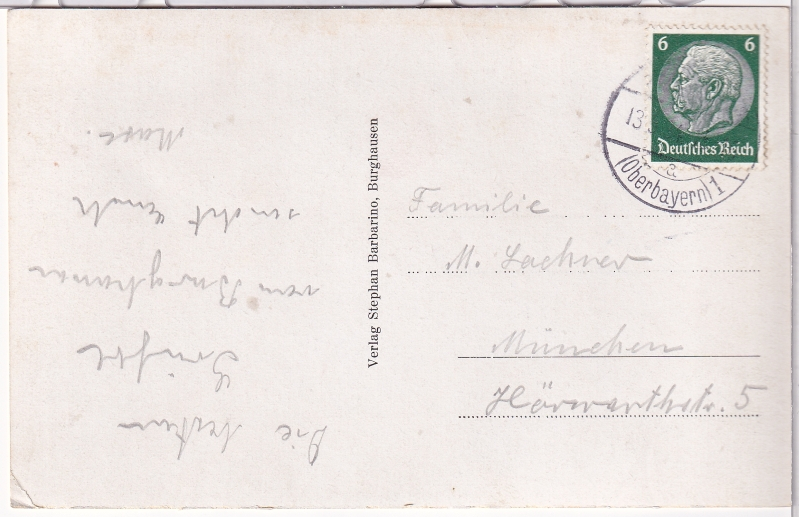 Die besten
Grüße
von Burghausen
sendet Euch
Max.
Verlag Stephan Barbarino, Burghausen
6 6
Deutsches Reich
13.
a
(Oberbayern) 1
Familie
M. Lachner
München
Hörwarthstr. 5